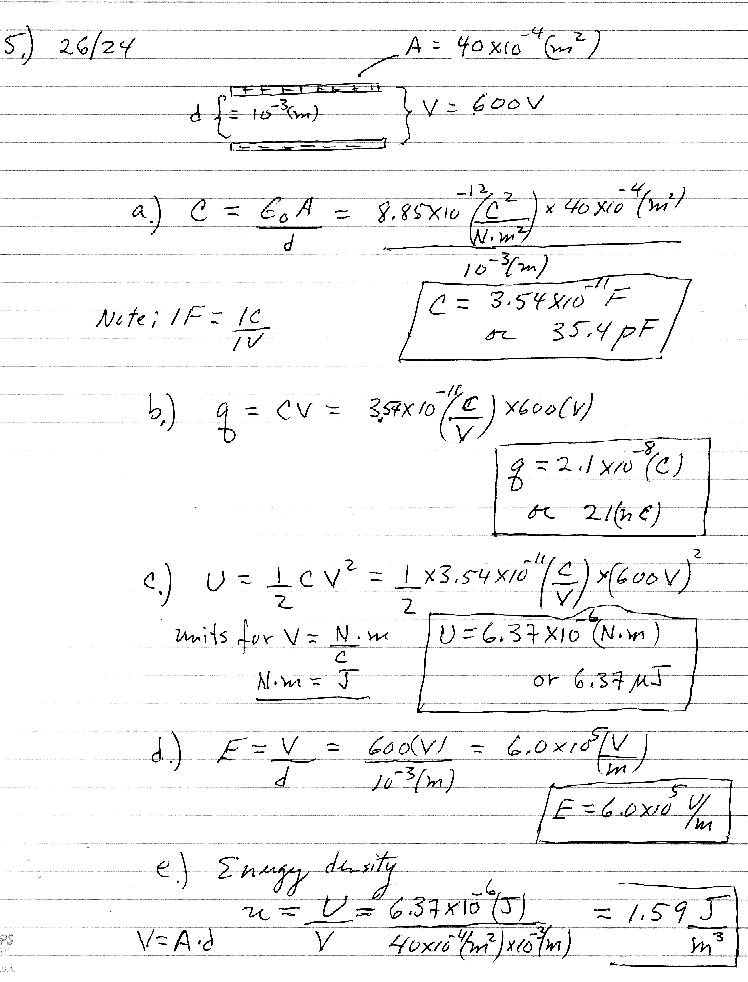 5.) 26/24
A = 40x10⁻⁴(m²)
d { = 10⁻³(m) } V = 600V
a.) C = ε₀A / d = 8.85x10⁻¹² (C² / N·m²) x 40x10⁻⁴(m²) / 10⁻³(m)
C = 3.54x10⁻¹¹ F
or 35.4 pF
Note; 1F = 1C / 1V
b.) q = CV = 3.54x10⁻¹¹ (C / V) x600(V)
q = 2.1x10⁻⁸(C)
or 21(nC)
c.) U = 1/2 C V² = 1/2 x3.54x10⁻¹¹ (C / V) x(600V)²
units for V = N·m / C
U = 6.37x10⁻⁶ (N·m)
N·m = J
or 6.37 μJ
d.) E = V / d = 600(V) / 10⁻³(m) = 6.0x10⁵ (V / m)
E = 6.0x10⁵ V/m
e.) Energy density
u = U / V = 6.37x10⁻⁶(J) / 40x10⁻⁴(m²)x10⁻³(m) = 1.59 J / m³
V = A·d